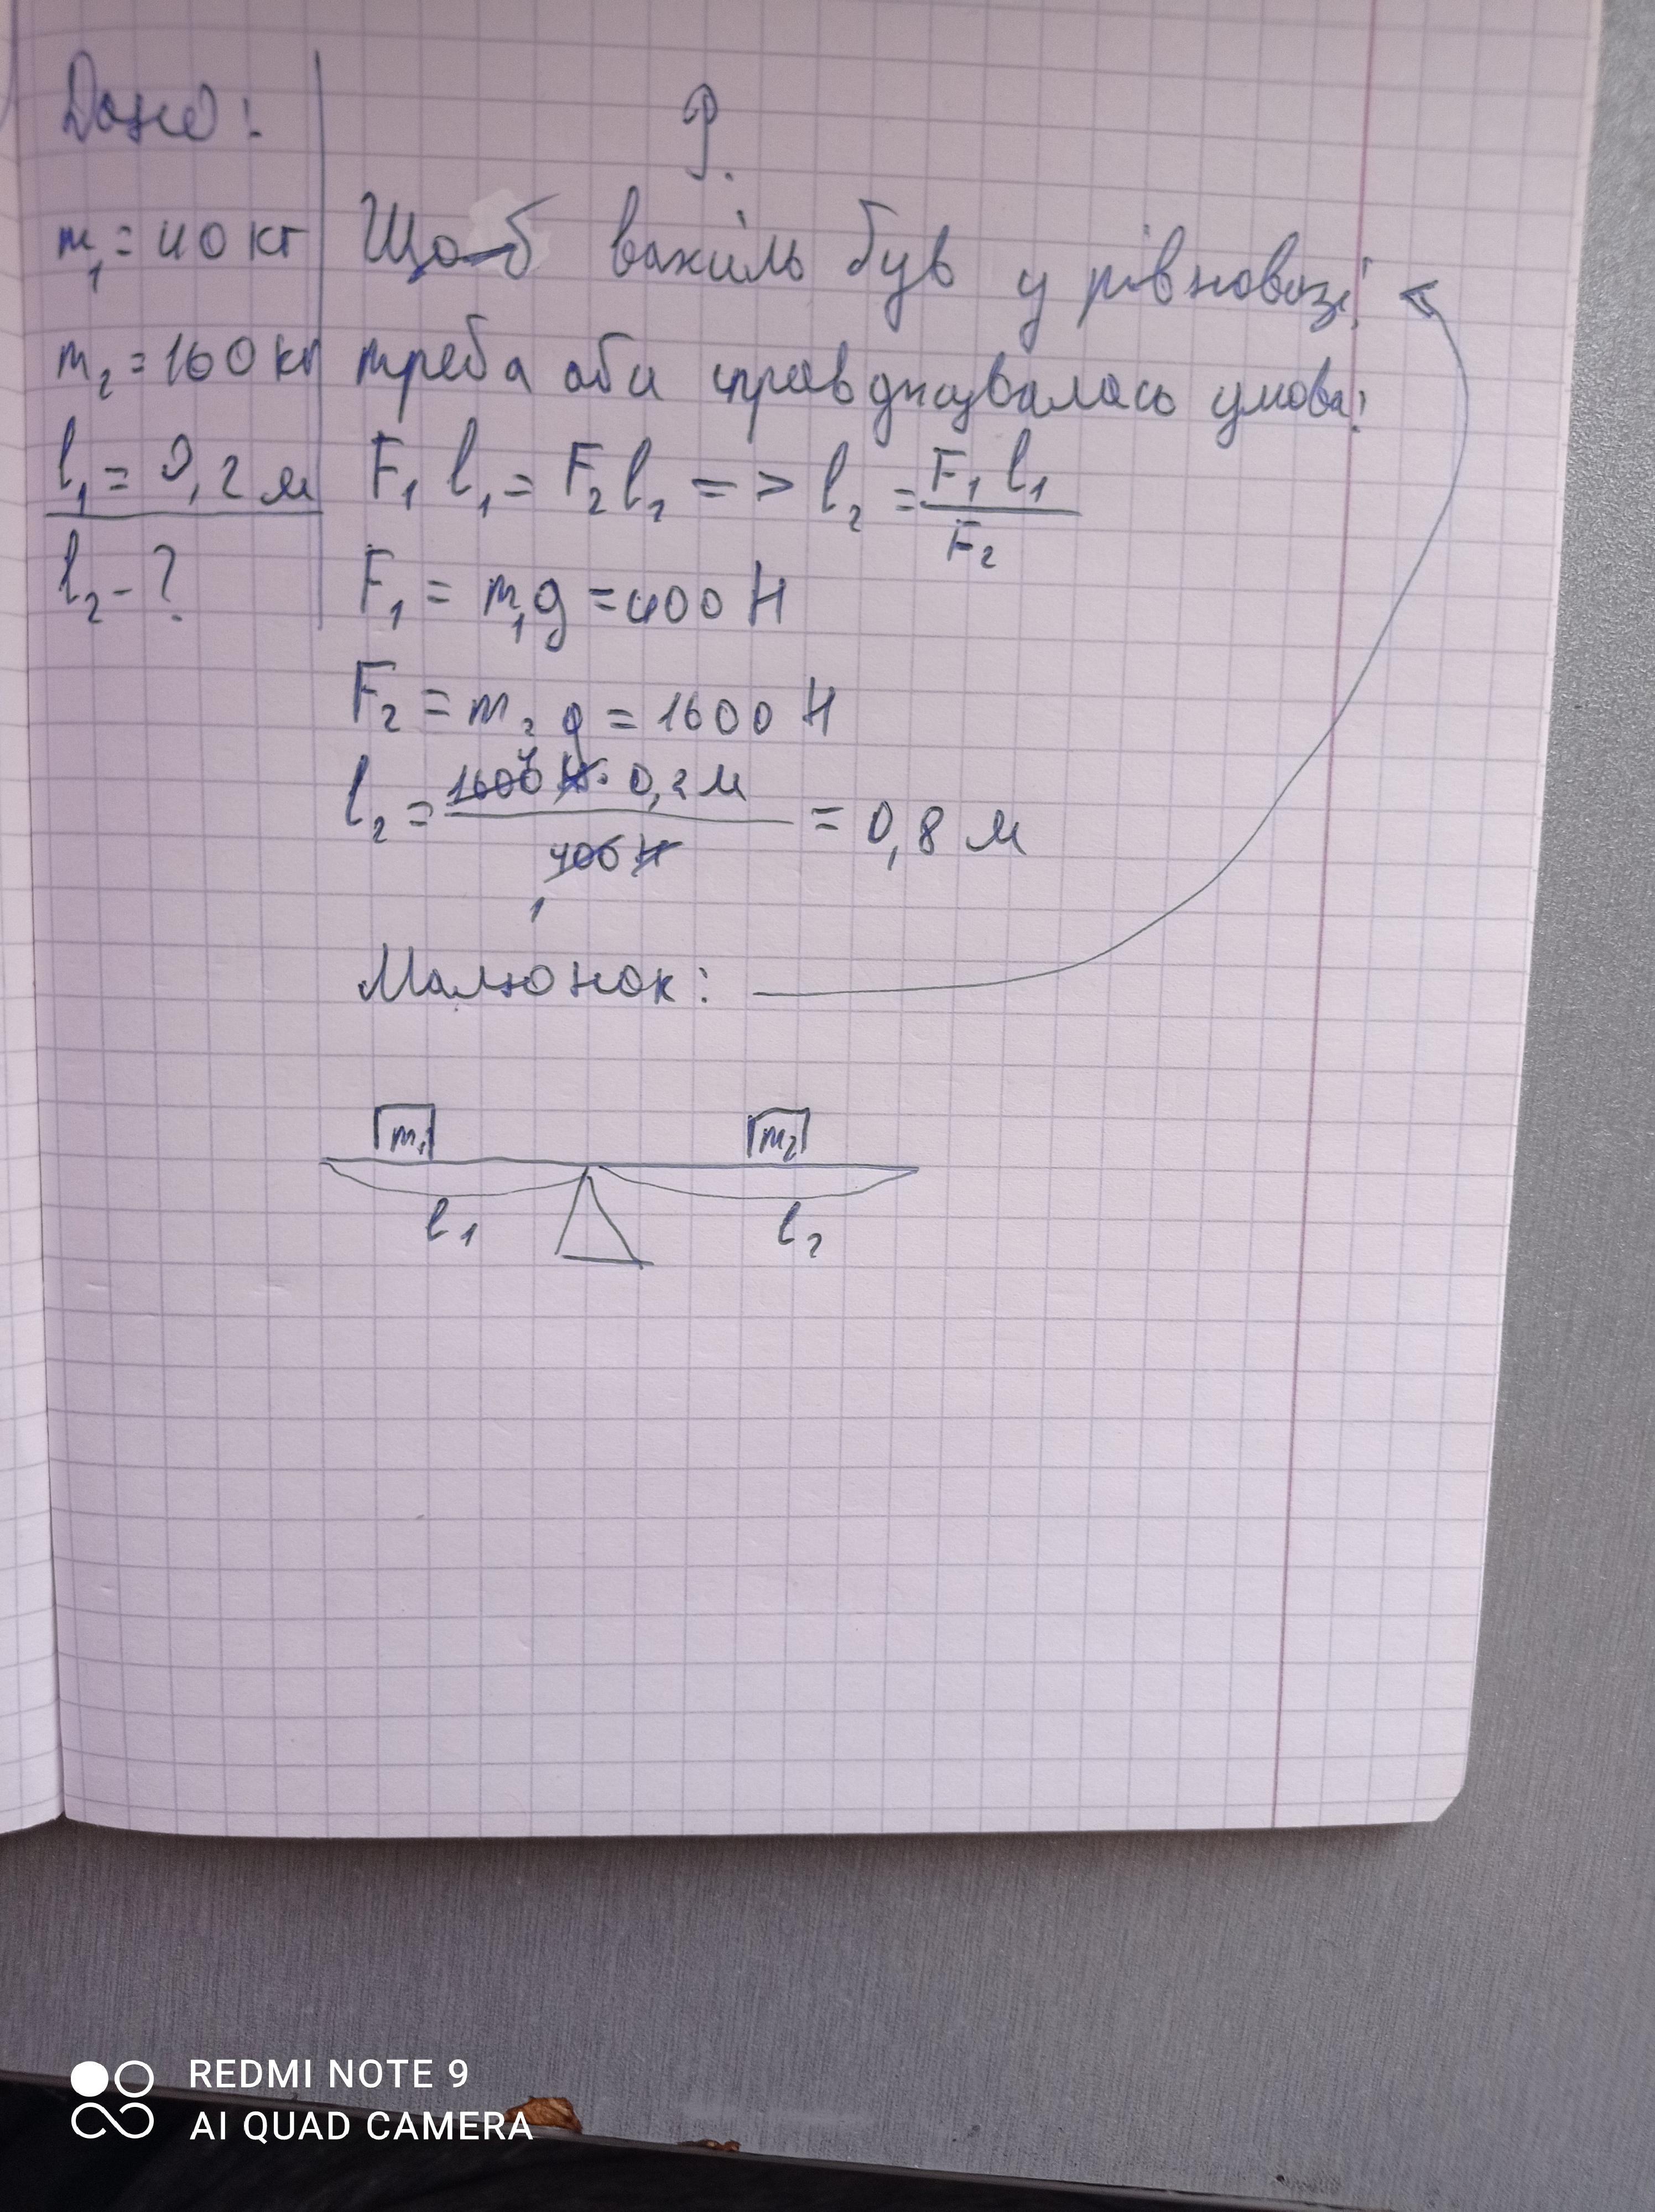 Дано:
m₁ = 40 кг
m₂ = 160 кг
l₁ = 0,2 м
l₂ - ?
Р.
Щоб важіль був у рівновазі,
треба аби справджувалась умова:
F₁ l₁ = F₂ l₂ => l₂ = F₁ l₁ / F₂
F₁ = m₁g = 400 Н
F₂ = m₂g = 1600 Н
l₂ = 1600 4 Н · 0,2 м / 400 Н 1 = 0,8 м
Малюнок:
m₁ m₂
l₁ l₂
REDMI NOTE 9
AI QUAD CAMERA